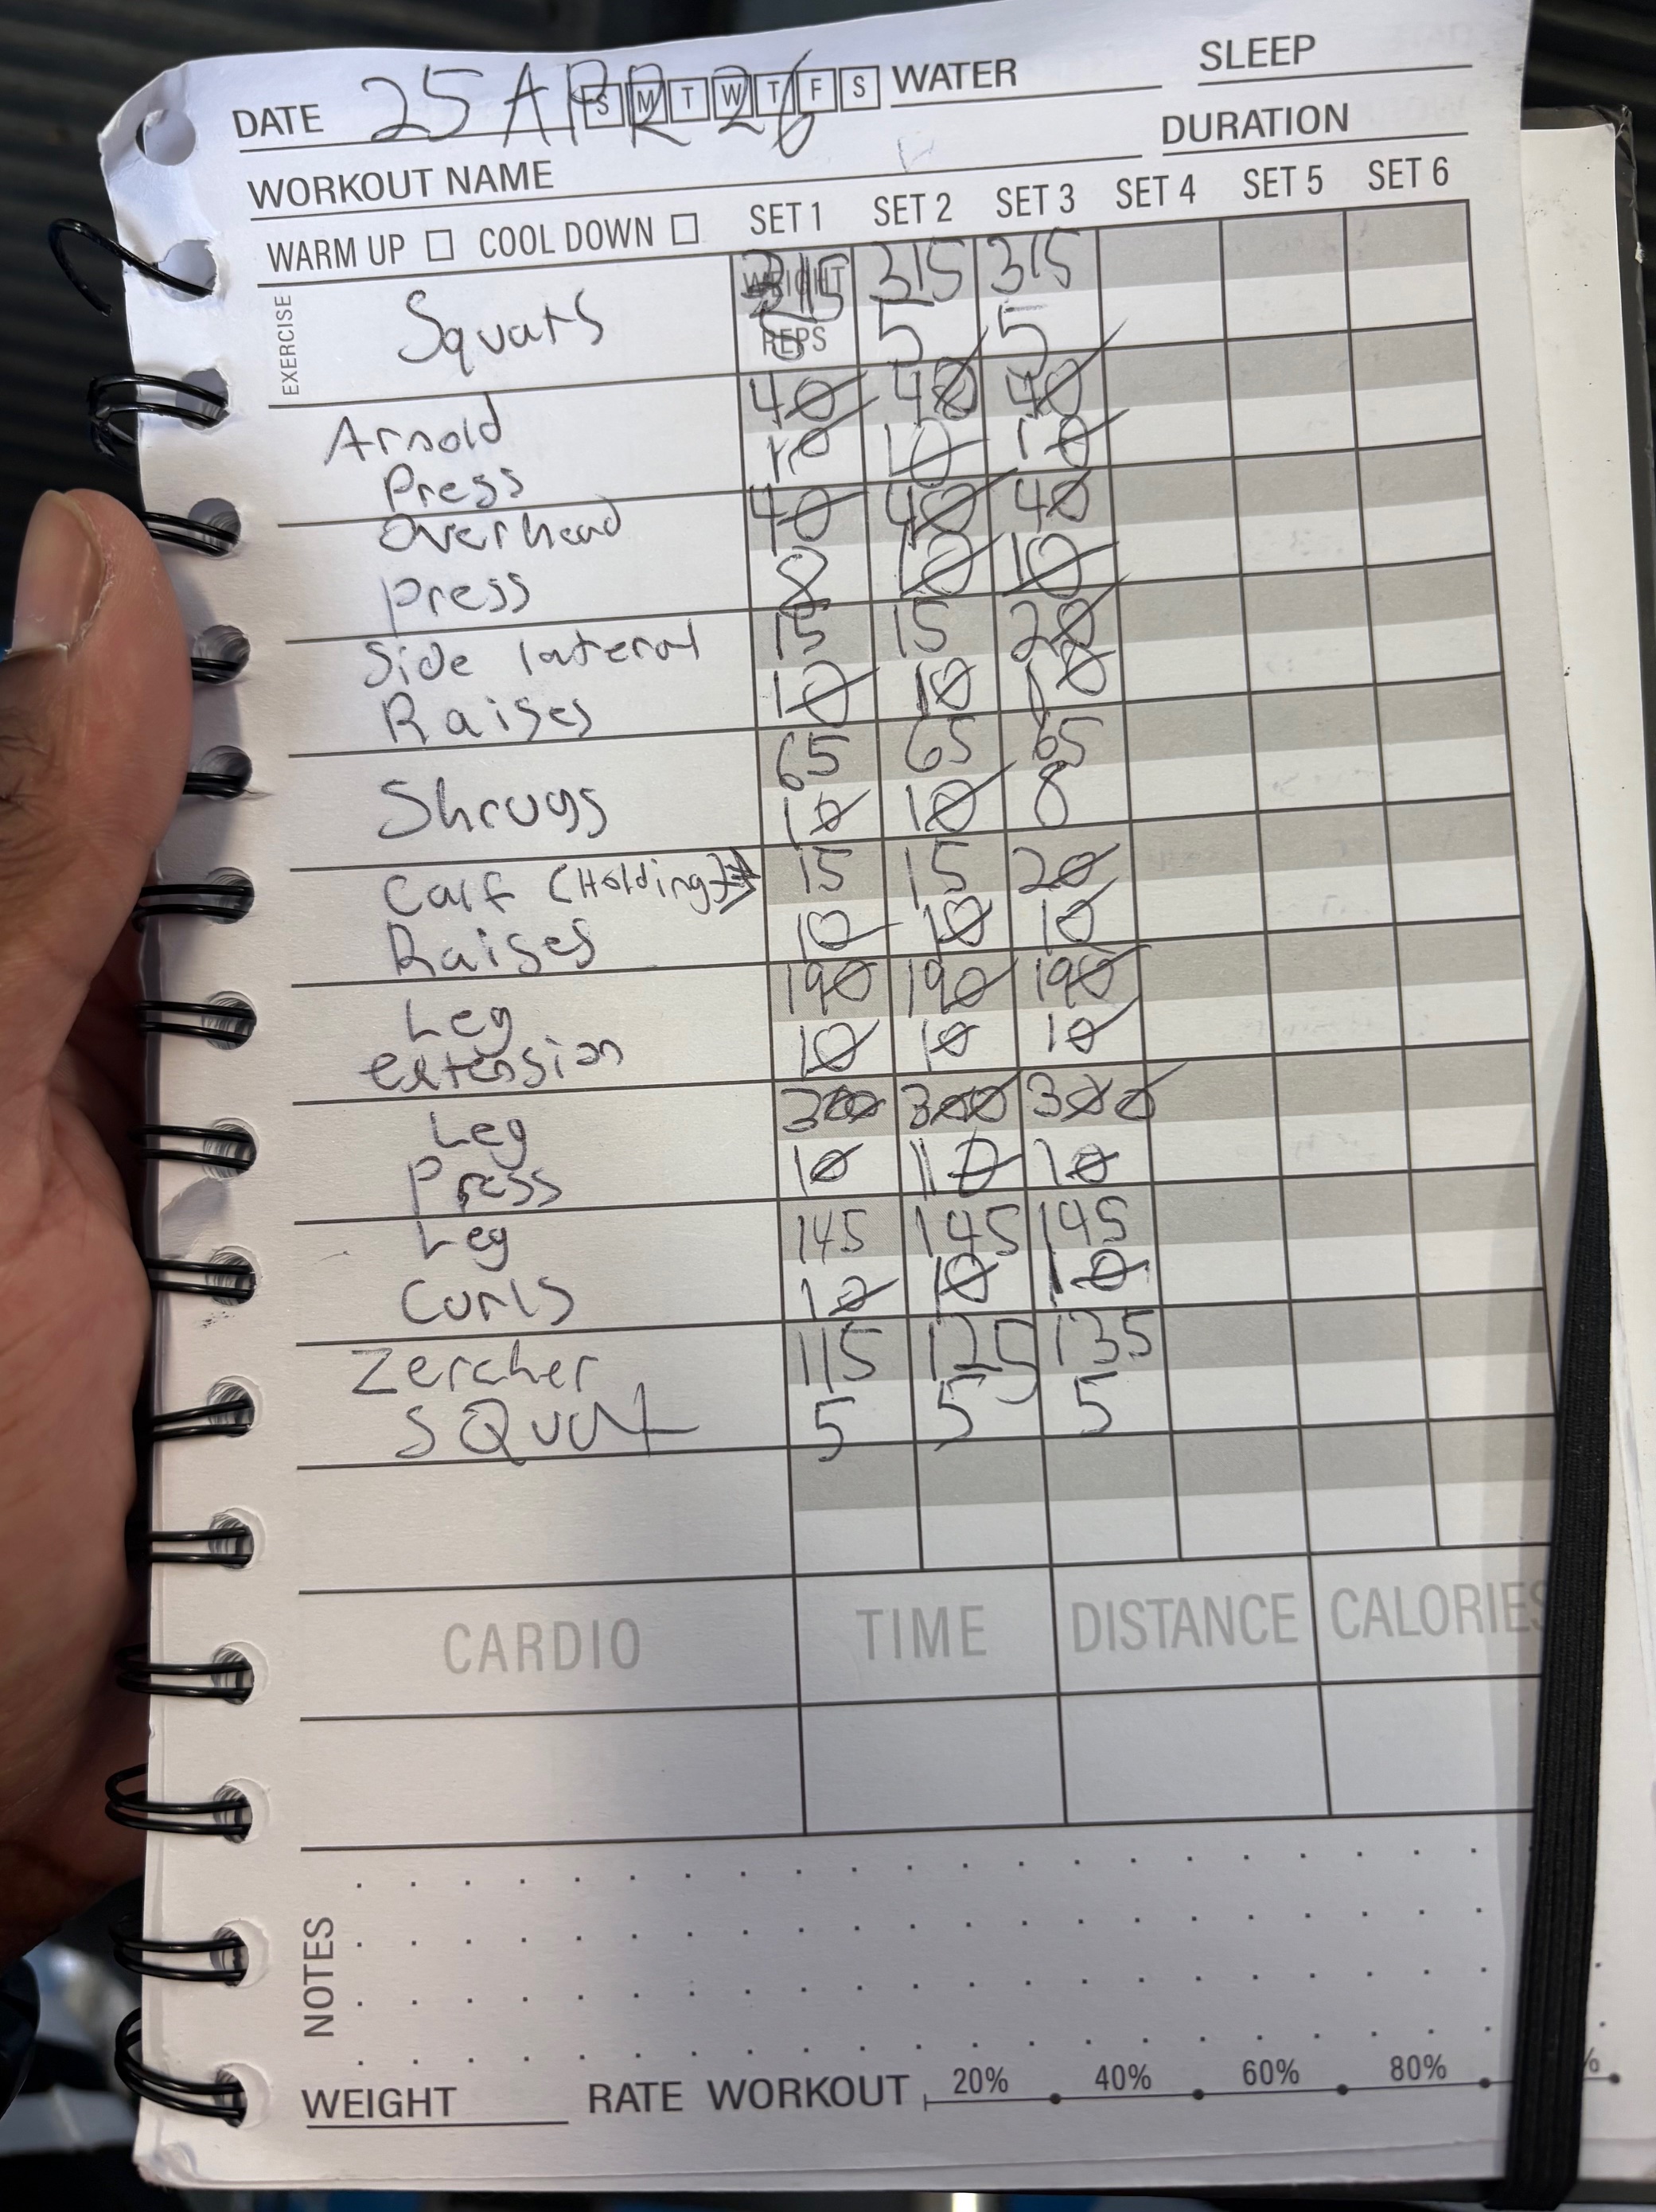 DATE 25 APR 26 S M T W T F S WATER SLEEP
WORKOUT NAME DURATION
WARM UP COOL DOWN SET 1 SET 2 SET 3 SET 4 SET 5 SET 6
EXERCISE
WEIGHT
REPS
Squats
315 315 315
5 5
Arnold
Press
40 40 40
10 10 10
Overhead
Press
40 40 40
8 10 10
Side lateral
Raises
15 15 20
10 10 10
Shrugs
65 65 65
10 10 8
Calf (Holding)
Raises
15 15 20
10 10 10
Leg
extension
190 190 190
10 10 10
Leg
Press
300 300 300
10 10 10
Leg
Curls
145 145 145
10 10 10
Zercher
SQuat
115 125 135
5 5 5
CARDIO TIME DISTANCE CALORIES
NOTES
WEIGHT RATE WORKOUT 20% 40% 60% 80% %